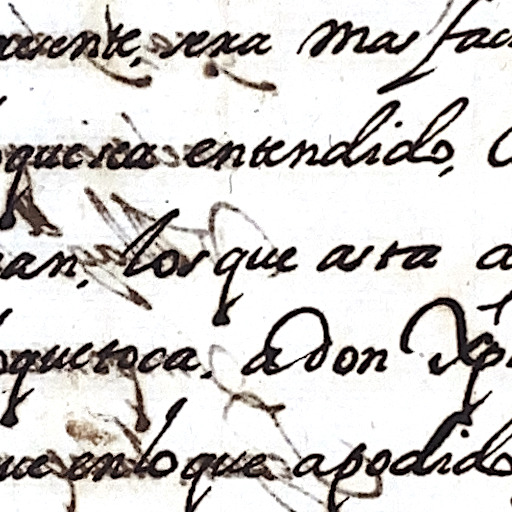 resente, sera mas faci
que sea entendido,
an, los que asta a
que toca, a don Xp
ue en lo que a podido